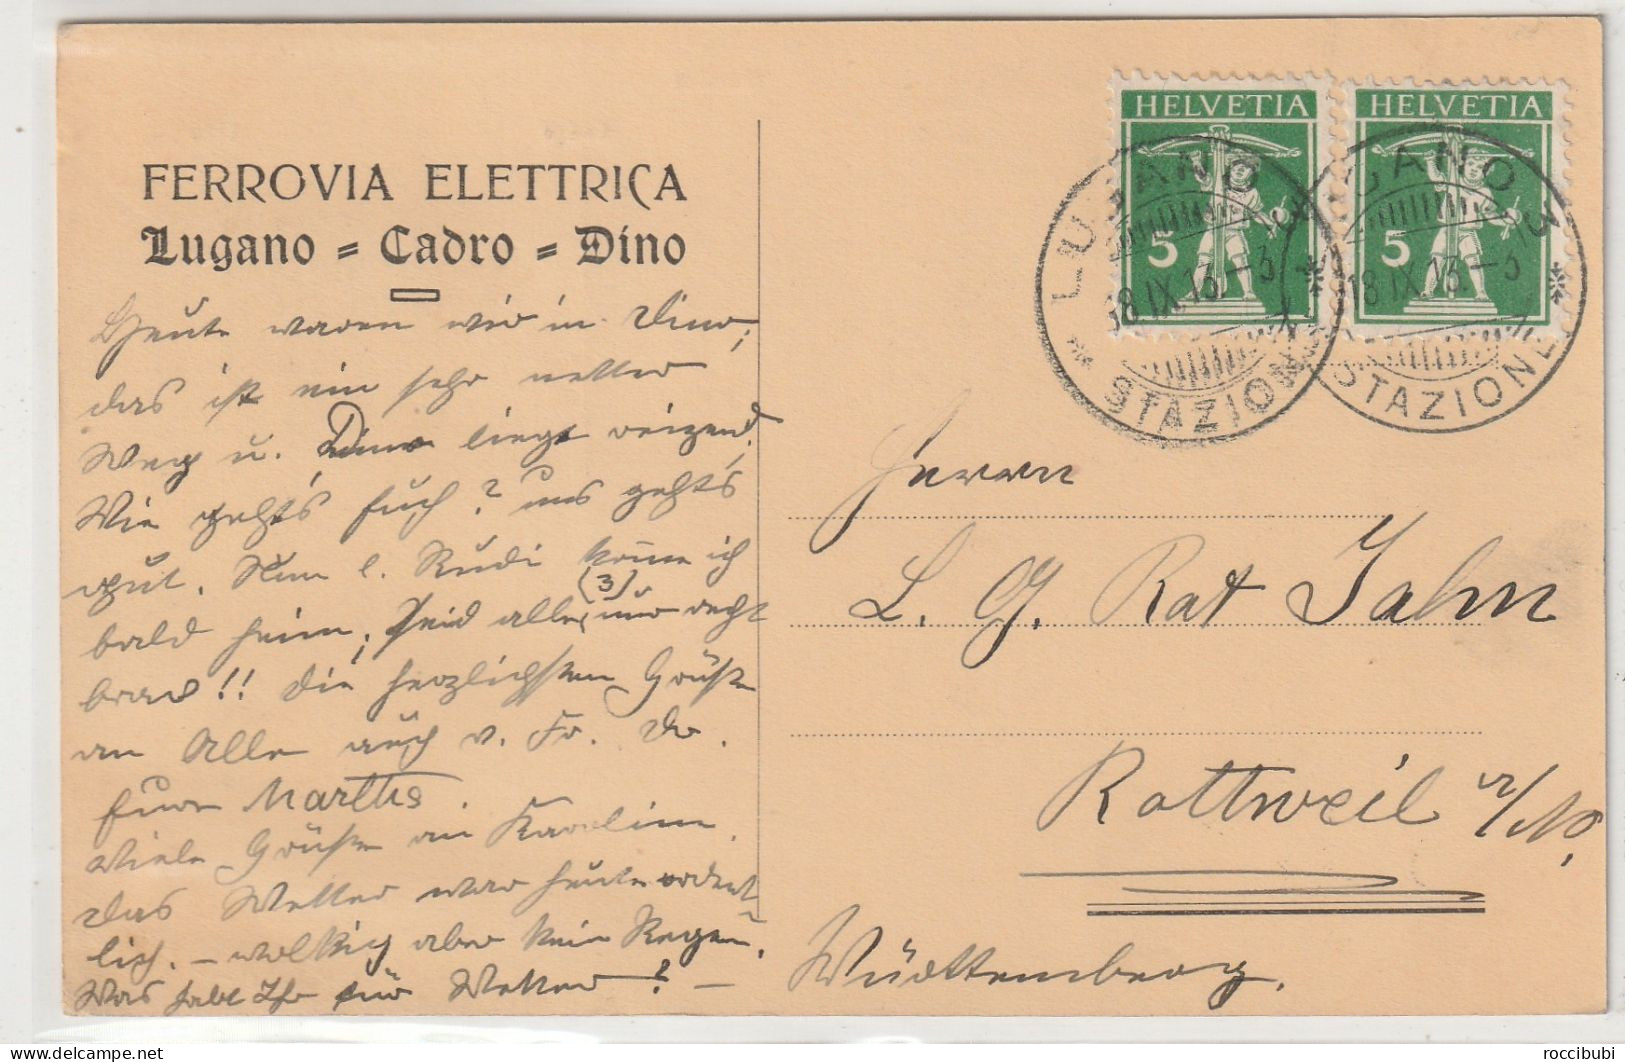 FERROVIA ELETTRICA
Lugano = Cadro = Dino
Heute waren wir in Dino,
das ist ein sehr netter
Weg u. Dino liegt reizend,
Wie geht's Euch? uns geht's
gut. Nun l. Rudi komme ich
bald heim, seid alle (3) nur recht
brav!! Die herzlichsten Grüße
an Alle auch v. Fr. Do.
Eure Martha.
Viele Grüße an Karoline.
Das Wetter war heute ordent-
lich. – wolkig aber kein Regen.
Was habt Ihr für Wetter? –
HELVETIA
5
HELVETIA
5
LUGANO 3
18 IX 13.–3
STAZIONE
LUGANO 3
18 IX 13.–3
STAZIONE
Herrn
L. G. Rat Jahn
Rottweil a/N.
Württemberg.
roccibubi